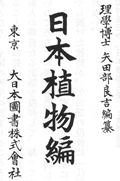 理學博士 矢田部良吉編纂
日本植物編
東京 大日本圖書株式會社